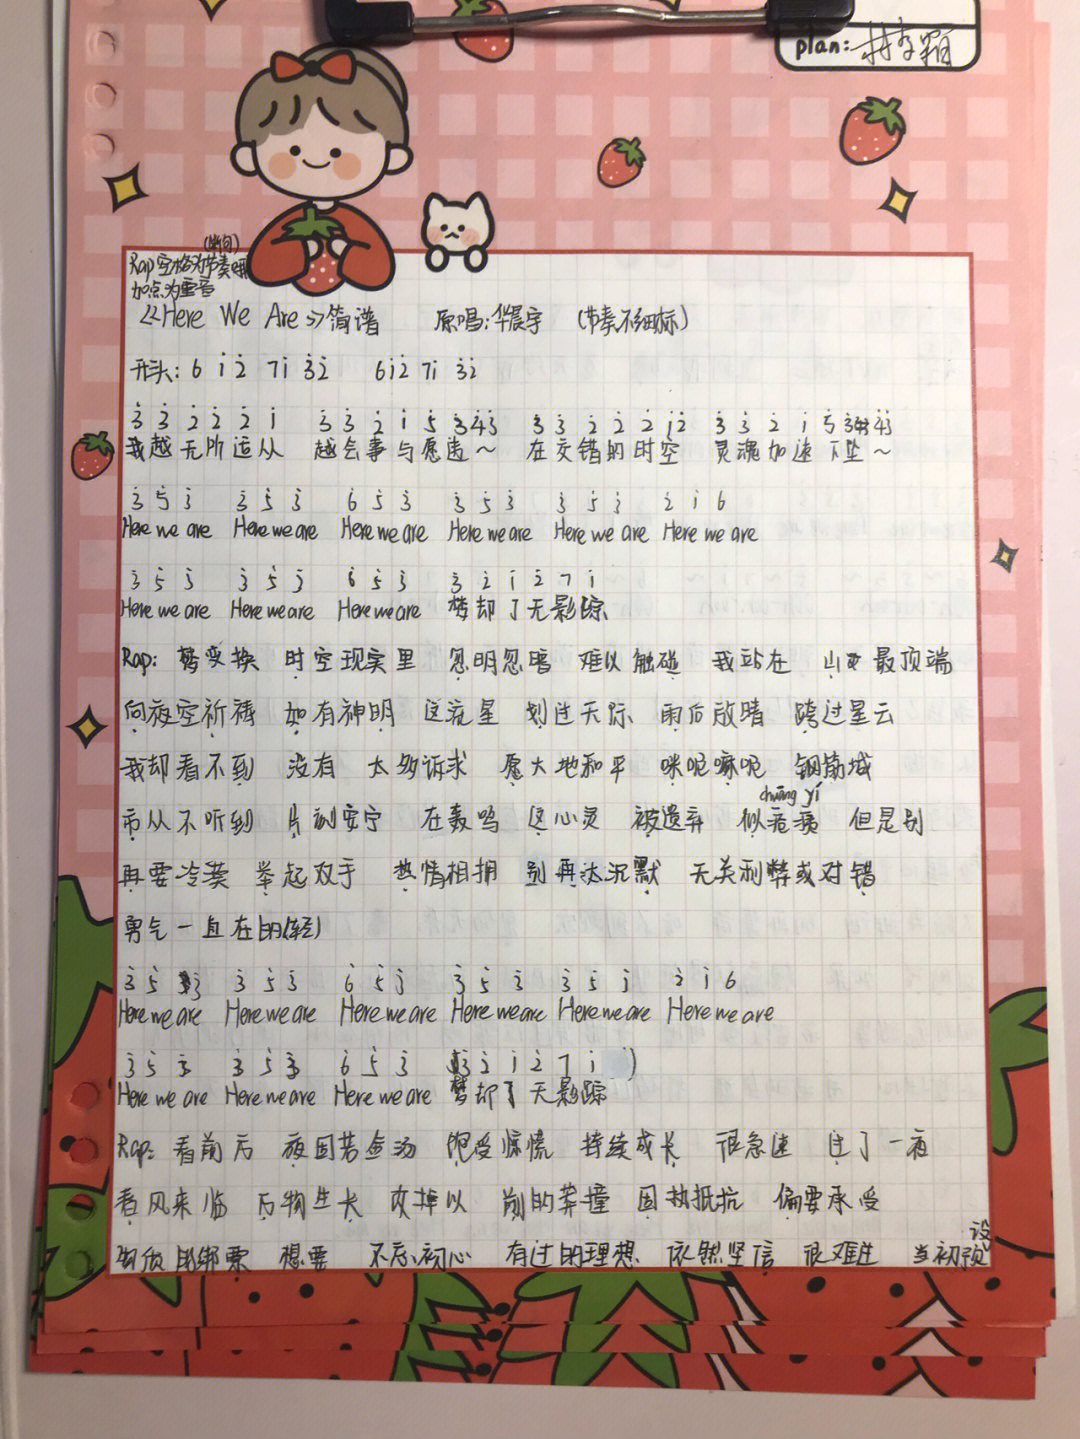 plan:
(断句)
Rap空格为节奏
加点为重音
《Here We Are》简谱 原唱:华晨宇 (节奏不细标)
开头: 6 i 2 7i 32 6i2 7i 32
3 3 2 2 2 i 3 3 2 i 5 343 3 3 2 2 2 i2 3 3 2 i 5 3443
我越无所适从 越会事与愿违~ 在交错的时空 灵魂加速下坠~
3 5 3 3 5 3 6 5 3 3 5 3 3 5 3 2 i 6
Here we are Here we are Here we are Here we are Here we are Here we are
3 5 3 3 5 3 6 5 3 3 2 i 2 7 i
Here we are Here we are Here we are 梦却了无影踪
Rap: 梦变换 时空现实里 忽明忽暗 难以触碰 我站在 山更最顶端
向夜空祈祷 如有神明 这流星 划过天际 雨后放晴 跨过星云
我却看不到 没有 太多诉求 愿大地和平 咪呢嘛呢 钢筋城
chuāng yí
市从不听到 片刻安宁 在轰鸣 这心灵 被遗弃 似疮痍 但是别
再要冷漠 举起双手 热情相拥 别再达沉默 无关利弊或对错
勇气一直在的(轻)
3 5 3 3 5 3 6 5 3 3 5 3 3 5 3 2 i 6
Here we are Here we are Here we are Here we are Here we are Here we are
3 5 3 3 5 3 6 5 3 3 2 i 2 7 i )
Here we are Here we are Here we are 梦却了无影踪
Rap: 看前方 夜固若金汤 饱受惊慌 持续成长 很急速 过了一夜
春风来临 万物生长 改掉以 前的莽撞 固执抵抗 偏要承受
绑票 想要 不忘初心 有过的理想 依然坚信 很难进 当初预设